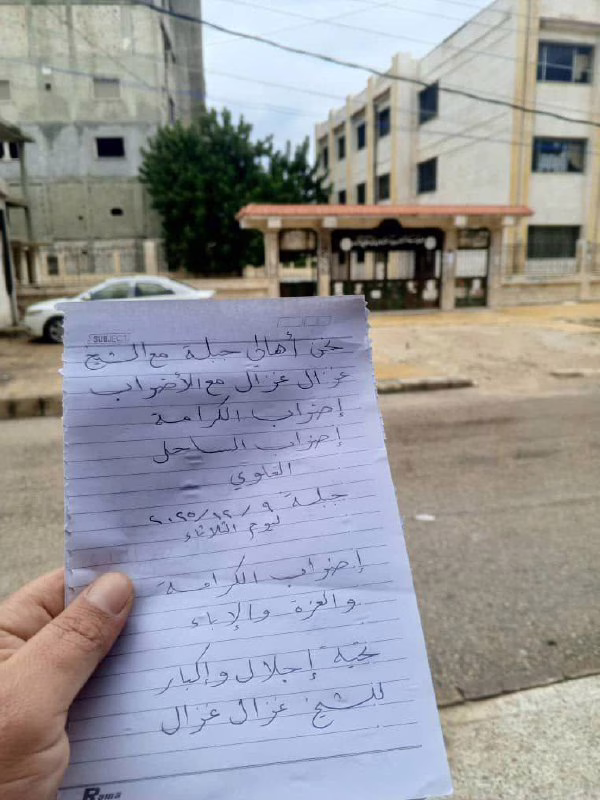 SUBJECT:
نحن أهالي جبلة مع الشيخ
غزال غزال مع الأضراب
إضراب الكرامة
إضراب الساحل
العلوي
جبلة ٢٠٢٥/١٢/٩
يوم الثلاثاء
إضراب الكرامة
والعزة والإباء
تحية إجلال وإكبار
للشيخ غزال غزال
Rama